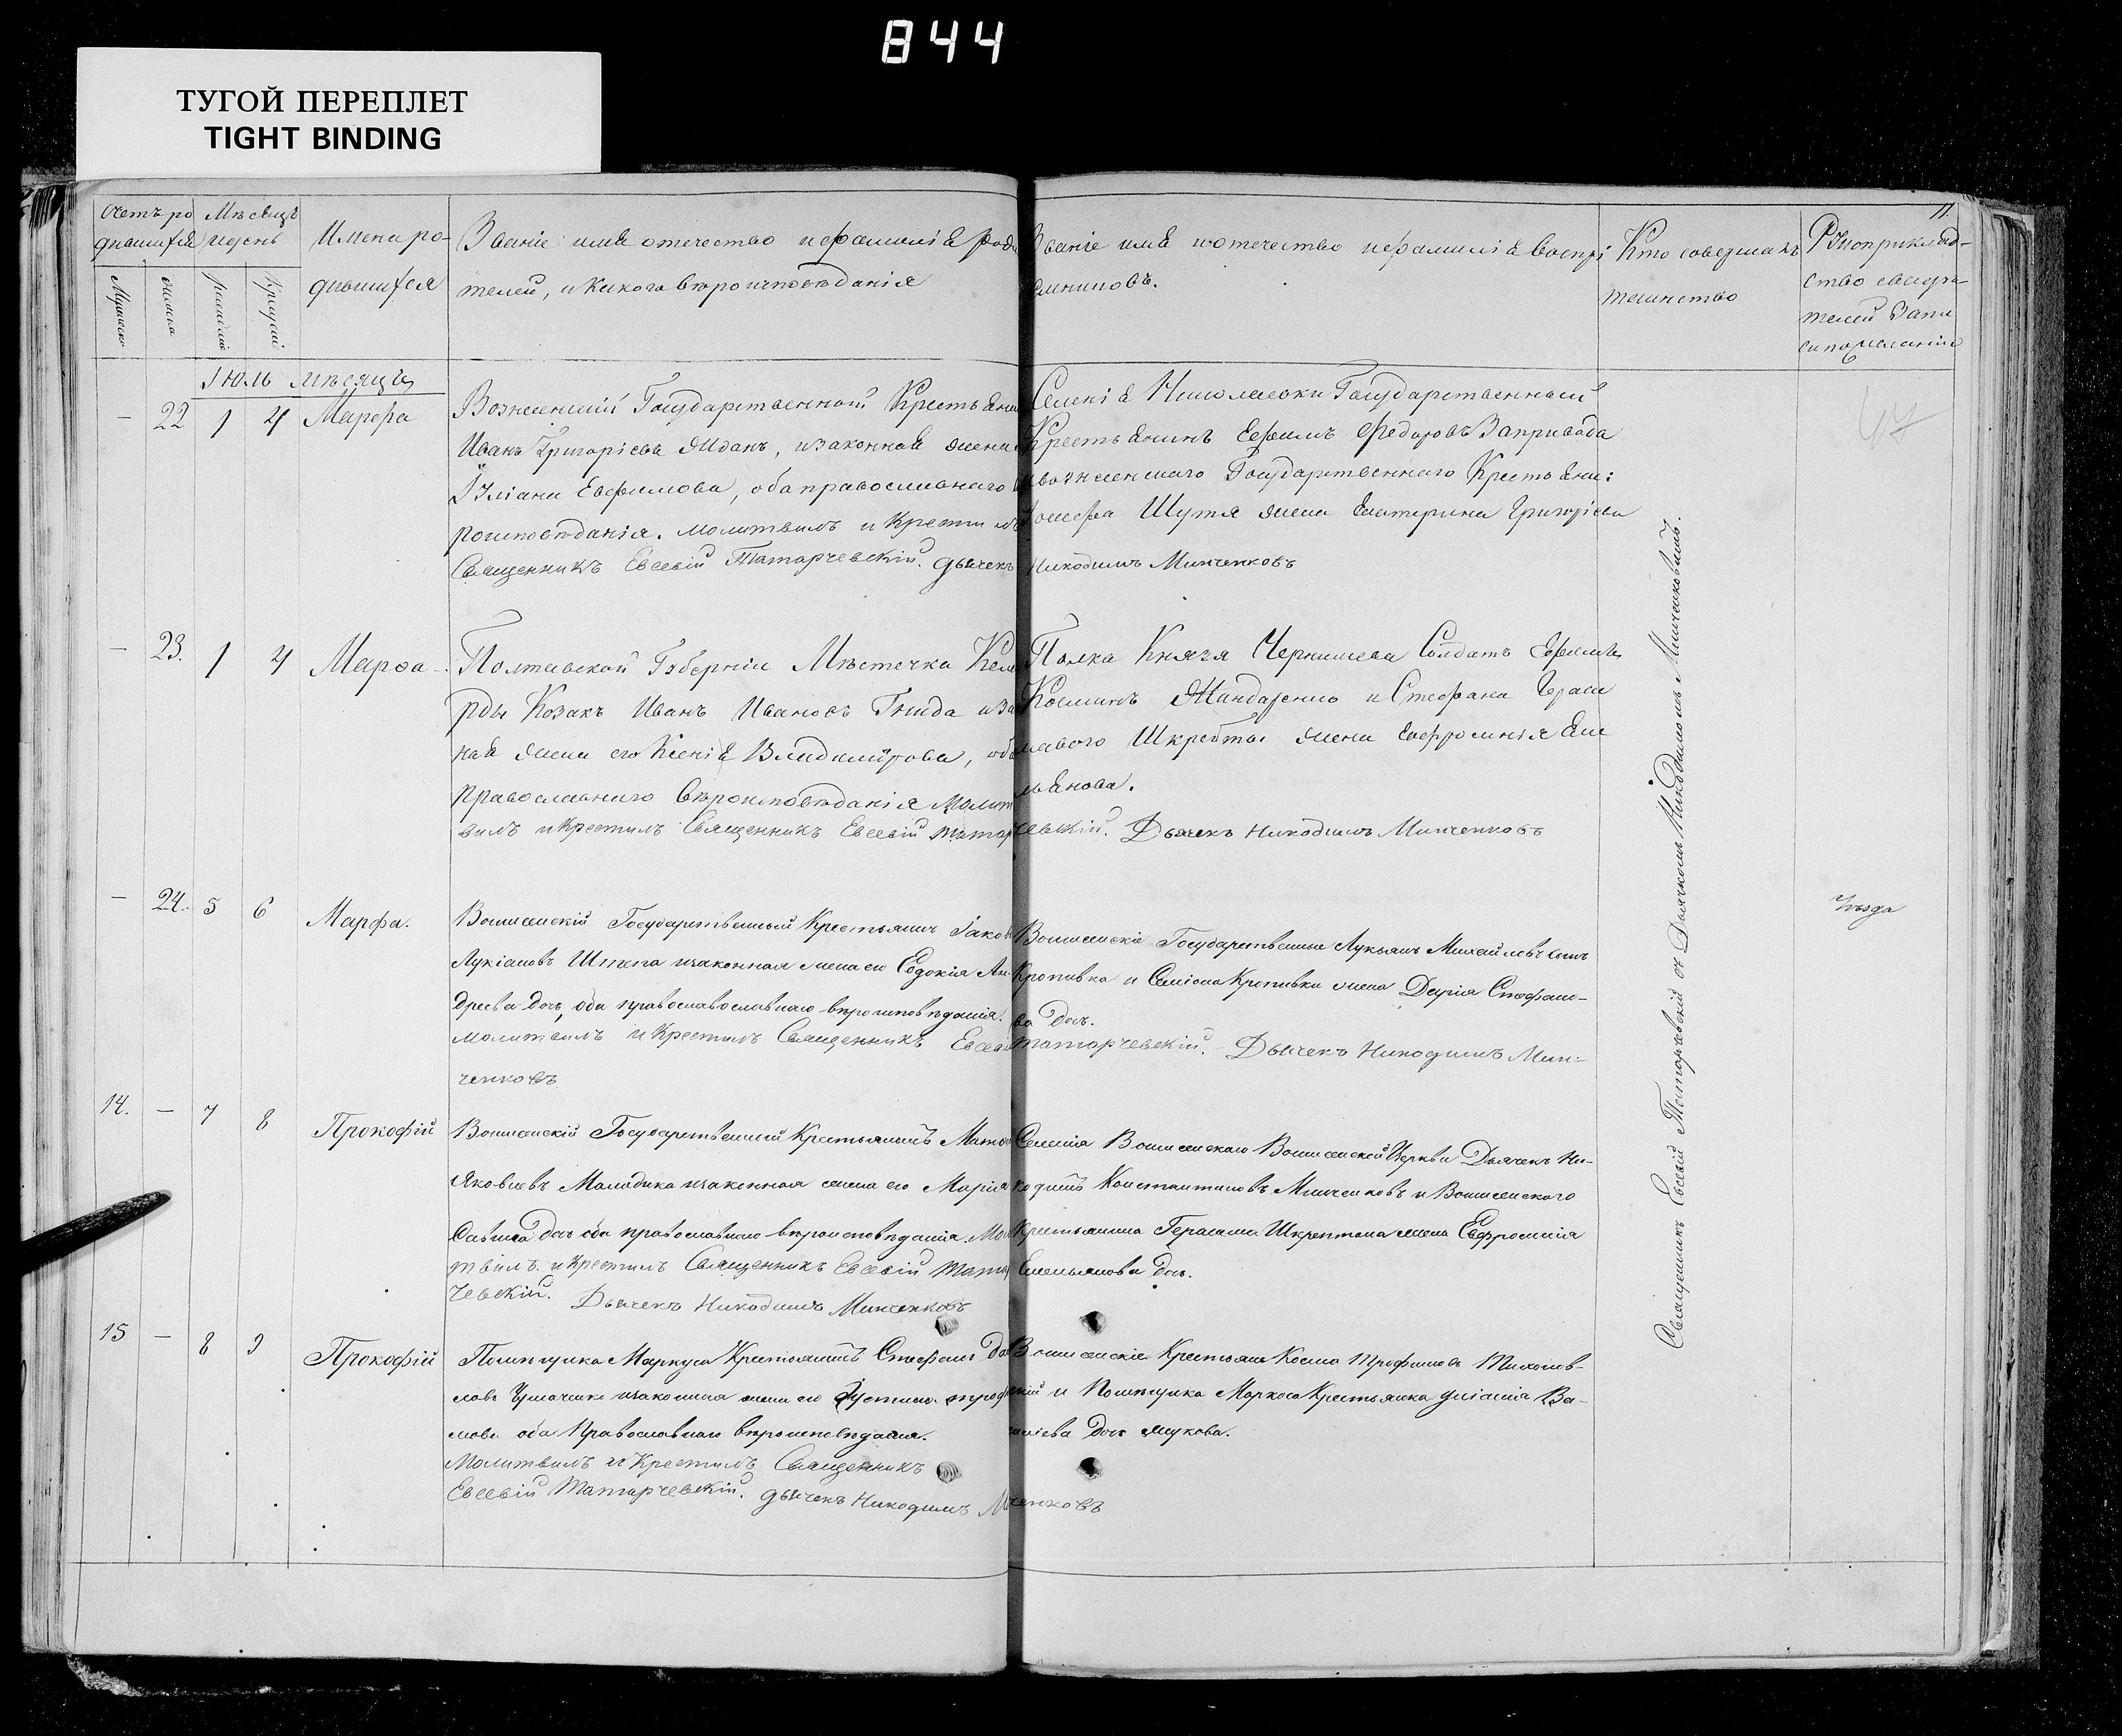 844
ТУГОЙ ПЕРЕПЛЕТ
TIGHT BINDING
11.
Счетъ ро
дившихся
Мѣсяцъ
и день
Мужеска
женска
рожденія
Крещенія
Имена ро-
дившихся
Званіе имя отечество и фамилія роди
телей, и какого вѣроисповѣданія
Званіе имя и отечество и фамилія воспрі
емниковъ.
Кто совершалъ
таинство
Рукоприклад-
ство свидѣ
телей запи
си по желанію
Іюль мѣсяцъ
47
— 22 1 4 Марфа
Вознесенскій Государственный Крестьяни
Иванъ Григоріевъ Жданъ, и законная жена
Іуліана Евфимова, оба православнаго
роисповѣданія. Молитвилъ и Крестилъ
Священникъ Евсевій Татарчевскій. Дьячекъ
Селенія Николаевки Государственный
Крестьянинъ Ефимъ Федоровъ Запривода
и вознесенскаго Государственнаго Крестьяни:
Іосифа Шутя жена Екатерина Григоріева
Никодимъ Минченковъ
— 23. 1 4 Марѳа
Полтавской Губерніи Мѣстечка Келе
рды Козакъ Иванъ Ивановъ Гнида и за
ная жена его Ксенія Владимірова, оба
православнаго вѣроисповѣданія Молит
вилъ и Крестилъ Священникъ Евсевій Татар
Полка Князя Чернишева Солдатъ Ефимъ
Косминъ Жиндаренко и Стефана Гераси
мавого Шкребты жена Евфросинія Еме
льянова.
чевскій. Дьячекъ Никодимъ Минченковъ
— 24. 5 6 Марфа.
Вознесенскій Государственный Крестьянинъ Іаков
Лукіановъ Штепа и законная жена его Евдокія Ан-
дреева дочь, оба православославнаго вѣроисповѣданія.
Молитвилъ и Крестилъ Священникъ Евсевій
ченковъ
Вознесенскіе Государственные Лукьянъ Михайловъ сынъ
Кропивка и Семіона Кропивки жена Дарія Стефано-
ва дочь.
Татарчевскій. Дьячекъ Никодимъ Мин-
Уѣзда
14. — 7 8 Прокофій
Вознесенскій Государственный Крестьянинъ Матѳ
Яковлевъ Маладика и законная жена его Марія
Савина дочь оба православнаго вѣроисповѣданія. Мол
твилъ и Крестилъ Священникъ Евсевій Татар
чевскій. Дьячекъ Никодимъ Минченковъ
Селенія Вознесенскаго Вознесенской Церкви Дьячекъ Ни-
кодимъ Константиновъ Минченковъ и Вознесенскаго
Крестьянина Герасима Шкрептана жена Евфросинія
Емельянова дочь.
15 — 8 9 Прокофій
Помѣщика Маркуса Крестьянинъ Стефанъ Да
ловъ Чумаченко и законная жена его Іустина Троф
мова оба Православнаго вѣроисповѣданія.
Молитвилъ и Крестилъ Священникъ
Евсевій Татарчевскій. Дьячекъ Никодимъ М
Вознесенскіе Крестьяне Косма Трофимовъ Тихонов-
скій и Помѣщика Маркоса Крестьянка Уліанія Ва-
силіева дочь Жукова.
ченковъ
Священникъ Евсевій Татарчевскій съ Дьячкомъ Никодимомъ Минченковимъ.